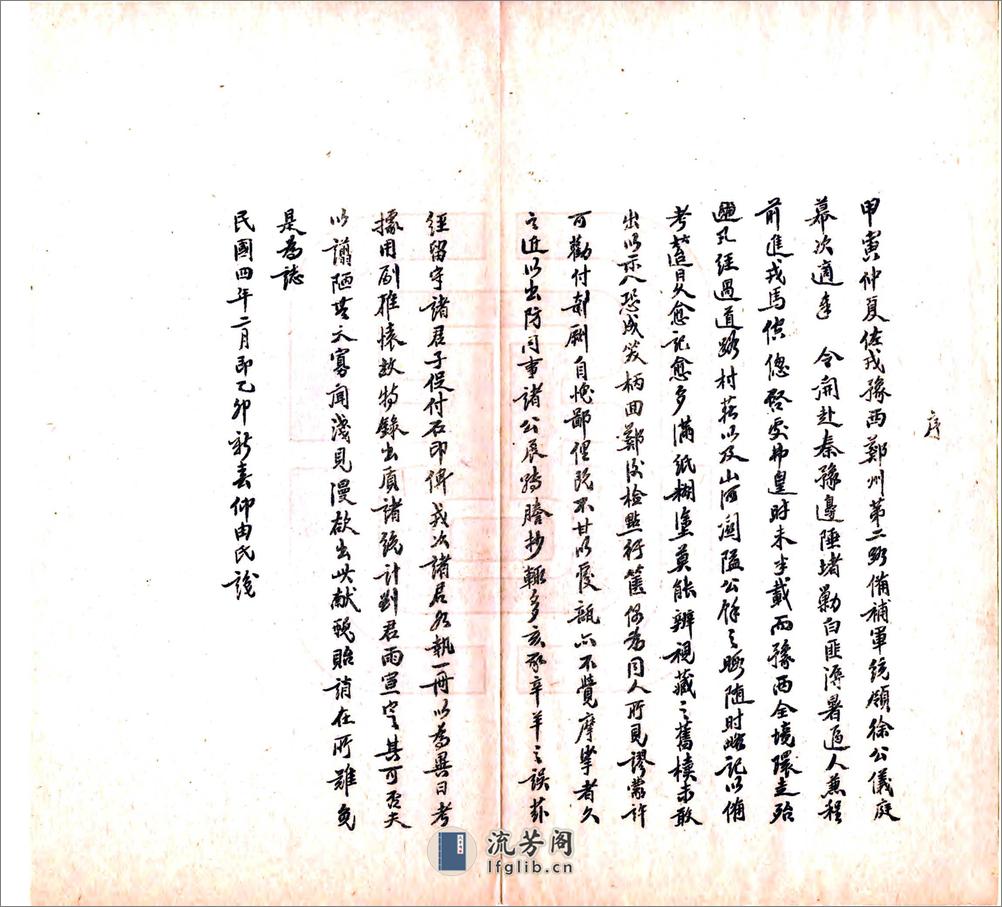 序
甲寅仲夏佐戎豫西鄭州第二路備補軍統領徐公儀庭
幕次適奉 令開赴秦豫邊陲堵勦白匪溽暑逼人蕞程
前進戎馬倥傯啓處弗皇時未半載而豫西全境環走殆
遍凡經過道路村莊以及山河關隘公餘之暇隨时略記以備
考查日久愈記愈多滿紙糊塗莫能辨視藏之舊櫝未敢
出以示人恐成笑柄回鄭後檢點行篋偶為同人所見謬蒙許
可勸付剞劂自愧鄙俚既不甘以覆瓿亦不覺摩挲者久
之近以出防同事諸公展轉謄抄輒多亥豕辛羊之誤茲
經留守諸君子促付石印俾戎次諸君各執一冊以為異日考
據用副雅懷故特錄出質諸統計劉君雨宣定其可否夫
以譾陋若文寡聞淺見漫欲出此献醜貽誚在所難免
是為誌
民國四年二月即乙卯新春仰由氏識
流芳阁
lfglib.cn